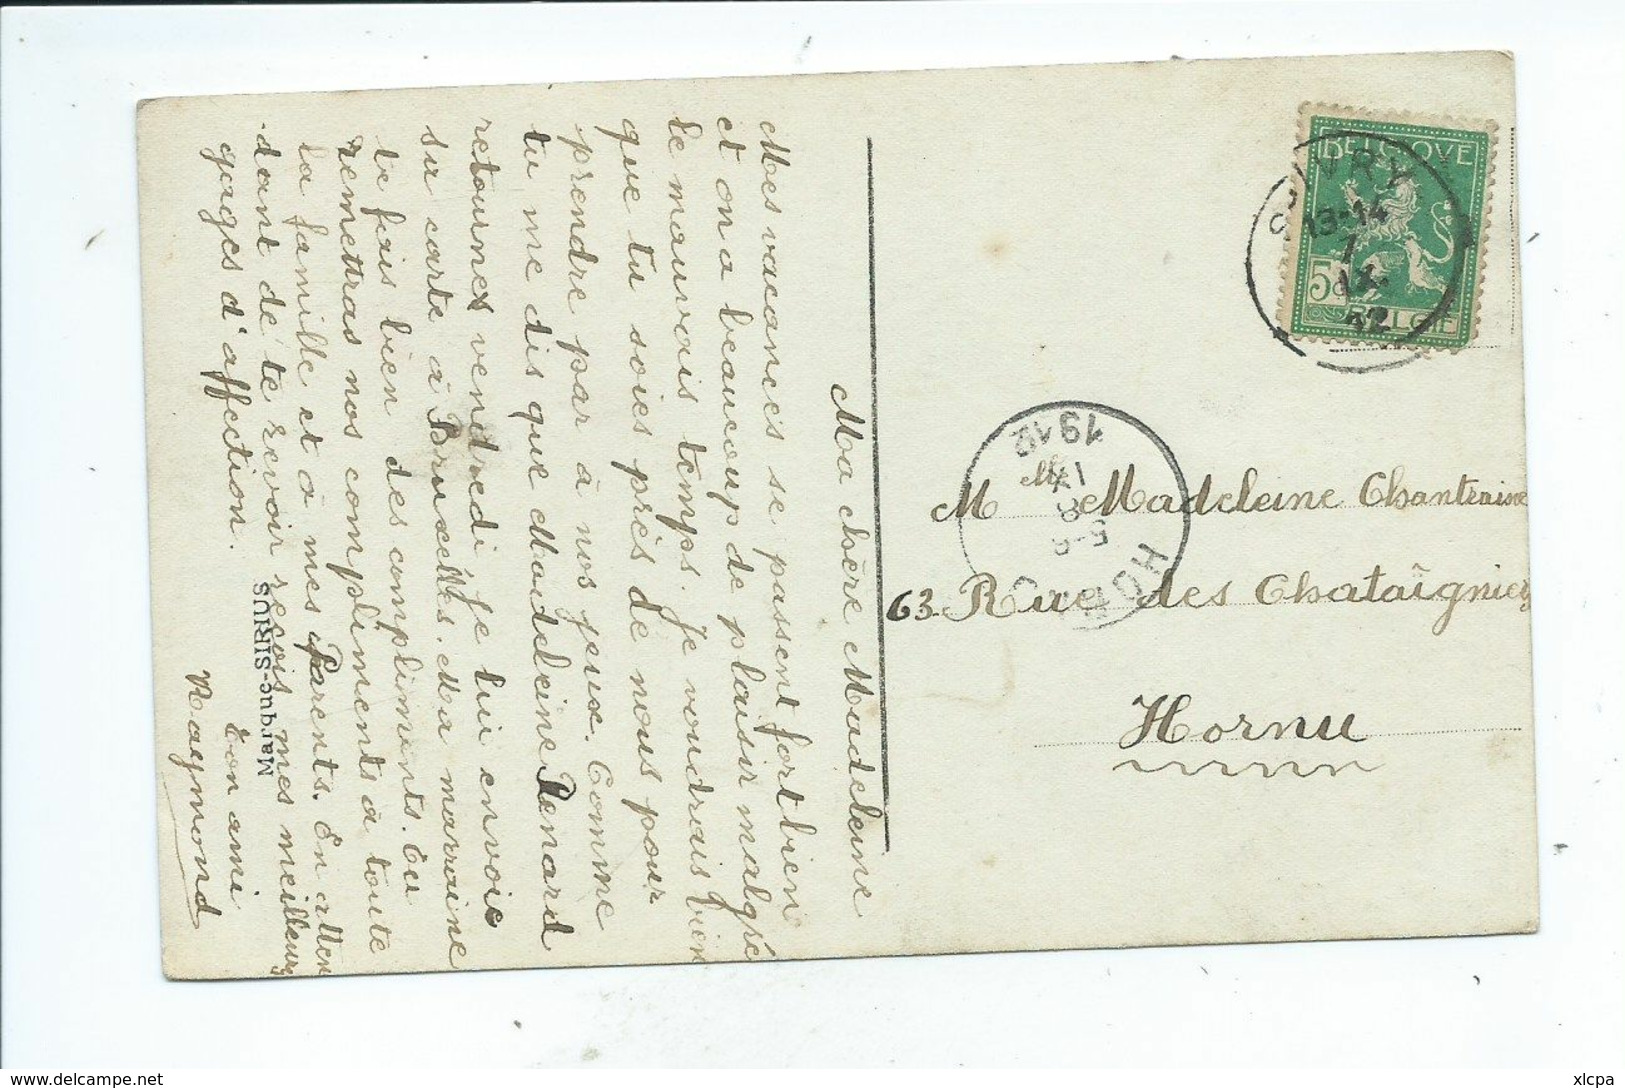 Ma chère Madeleine
Mes vacances se passent fort bien
et on a beaucoup de plaisir malgré
le mauvais temps. Je voudrais bien
que tu soies près de nous pour
prendre par à nos jeux. Comme
tu me dis que Madeleine Penard
retournes vendredi je lui envoie
sa carte à Bruxelles. Ma marraine
te fais bien des compliments. Tu
remettras nos compliments à toute
la famille et à mes Parents. En atten
dant de te revoir reçois mes meilleurs
gages d'affection.
Ton ami
Raymond
Marque-SIRIUS
BELGIQUE
5c
BELGIE
SIVRY
13-14
7
IX
12
HORNU
5-6
8
IX
1912
Mlle Madeleine Chantraine
63 Rue des Chataîgniers
Hornu
xlcpa